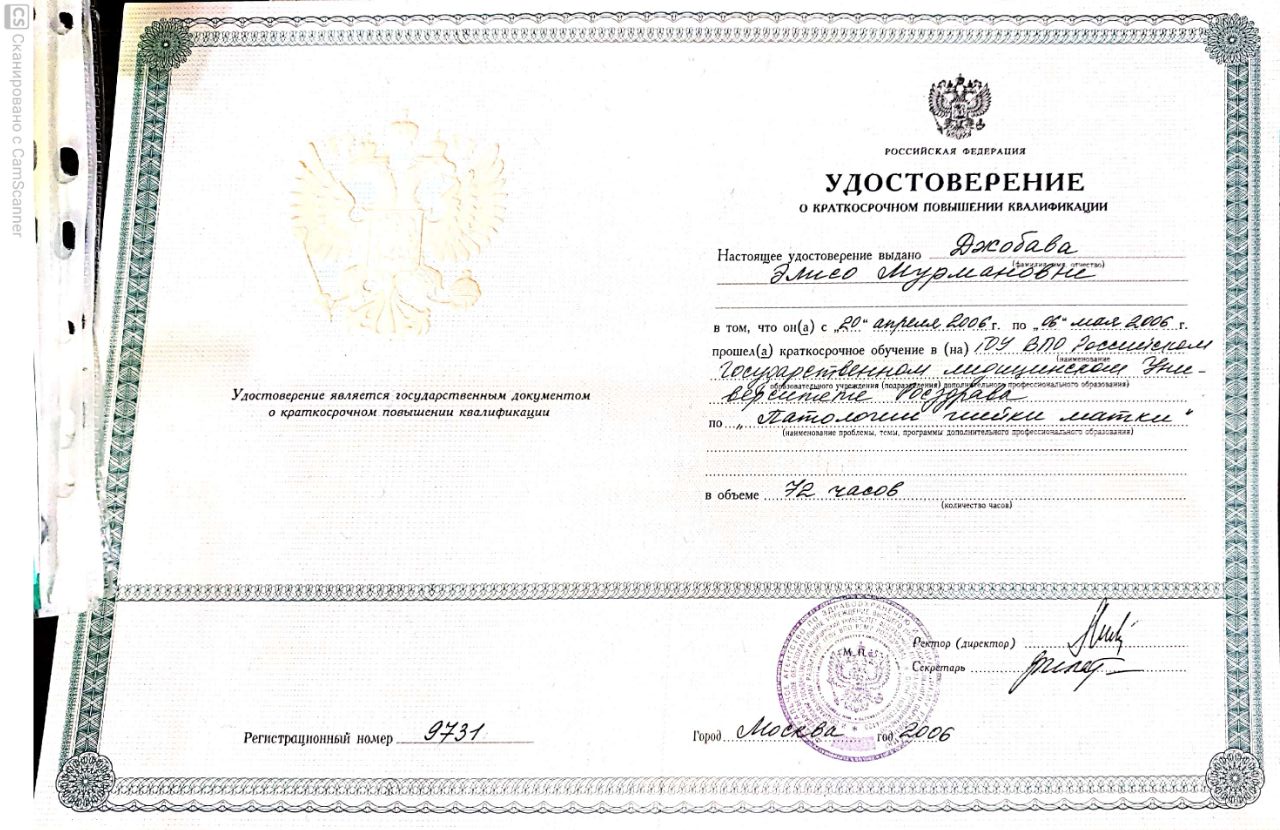 CS Сканировано с CamScanner
Удостоверение является государственным документом
о краткосрочном повышении квалификации
Регистрационный номер 9731
РОССИЙСКАЯ ФЕДЕРАЦИЯ
УДОСТОВЕРЕНИЕ
О КРАТКОСРОЧНОМ ПОВЫШЕНИИ КВАЛИФИКАЦИИ
Настоящее удостоверение выдано Джобава
(фамилия, имя, отчество)
Элисо Мурмановне
в том, что он(а) с „20“ апреля 2006 г. по „06“ мая 2006 г.
прошел(а) краткосрочное обучение в (на) ГОУ ВПО Российском
(наименование
государственном медицинском Уни-
образовательного учреждения (подразделения) дополнительного профессионального образования)
верситете Росздрава
по „Патологии шейки матки“
(наименование проблемы, темы, программы дополнительного профессионального образования)
в объеме 72 часов
(количество часов)
М.П.
Ректор (директор)
Секретарь
Город Москва год 2006